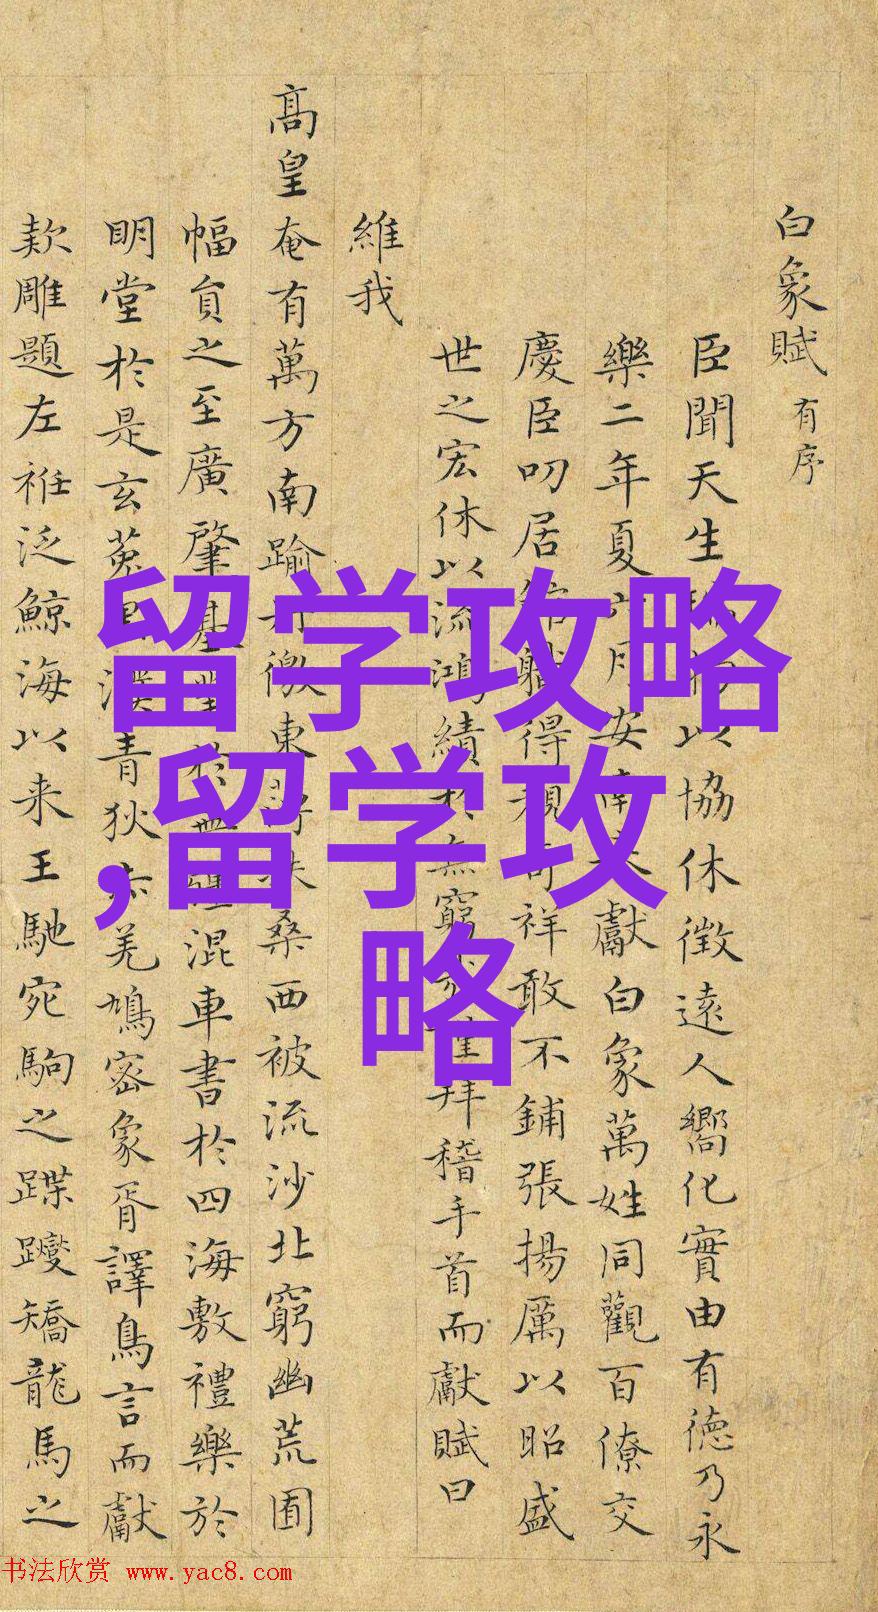 白象賦 有序
臣聞天生 以協休徵遠人嚮化實由有德乃永
樂二年夏 月安南 獻白象萬姓同觀百僚交
慶臣叨居 職得 奇祥敢不鋪張揚厲以昭盛
世之宏休以流鴻績於無窮 拜稽手首而獻賦曰
維我
高皇奄有萬方南踰 徼東 扶桑西被流沙北窮幽荒圄
幅員之至廣肇基 於 混車書於四海敷禮樂於
明堂於是玄菟 漠青狄赤羌鳩密象胥譯鳥言而獻
欵雕題左袵泛鯨海以来王馳宛駒之蹀躞矯龍馬之
留学攻略
,留学攻
略
书法欣赏 www.yac8.com